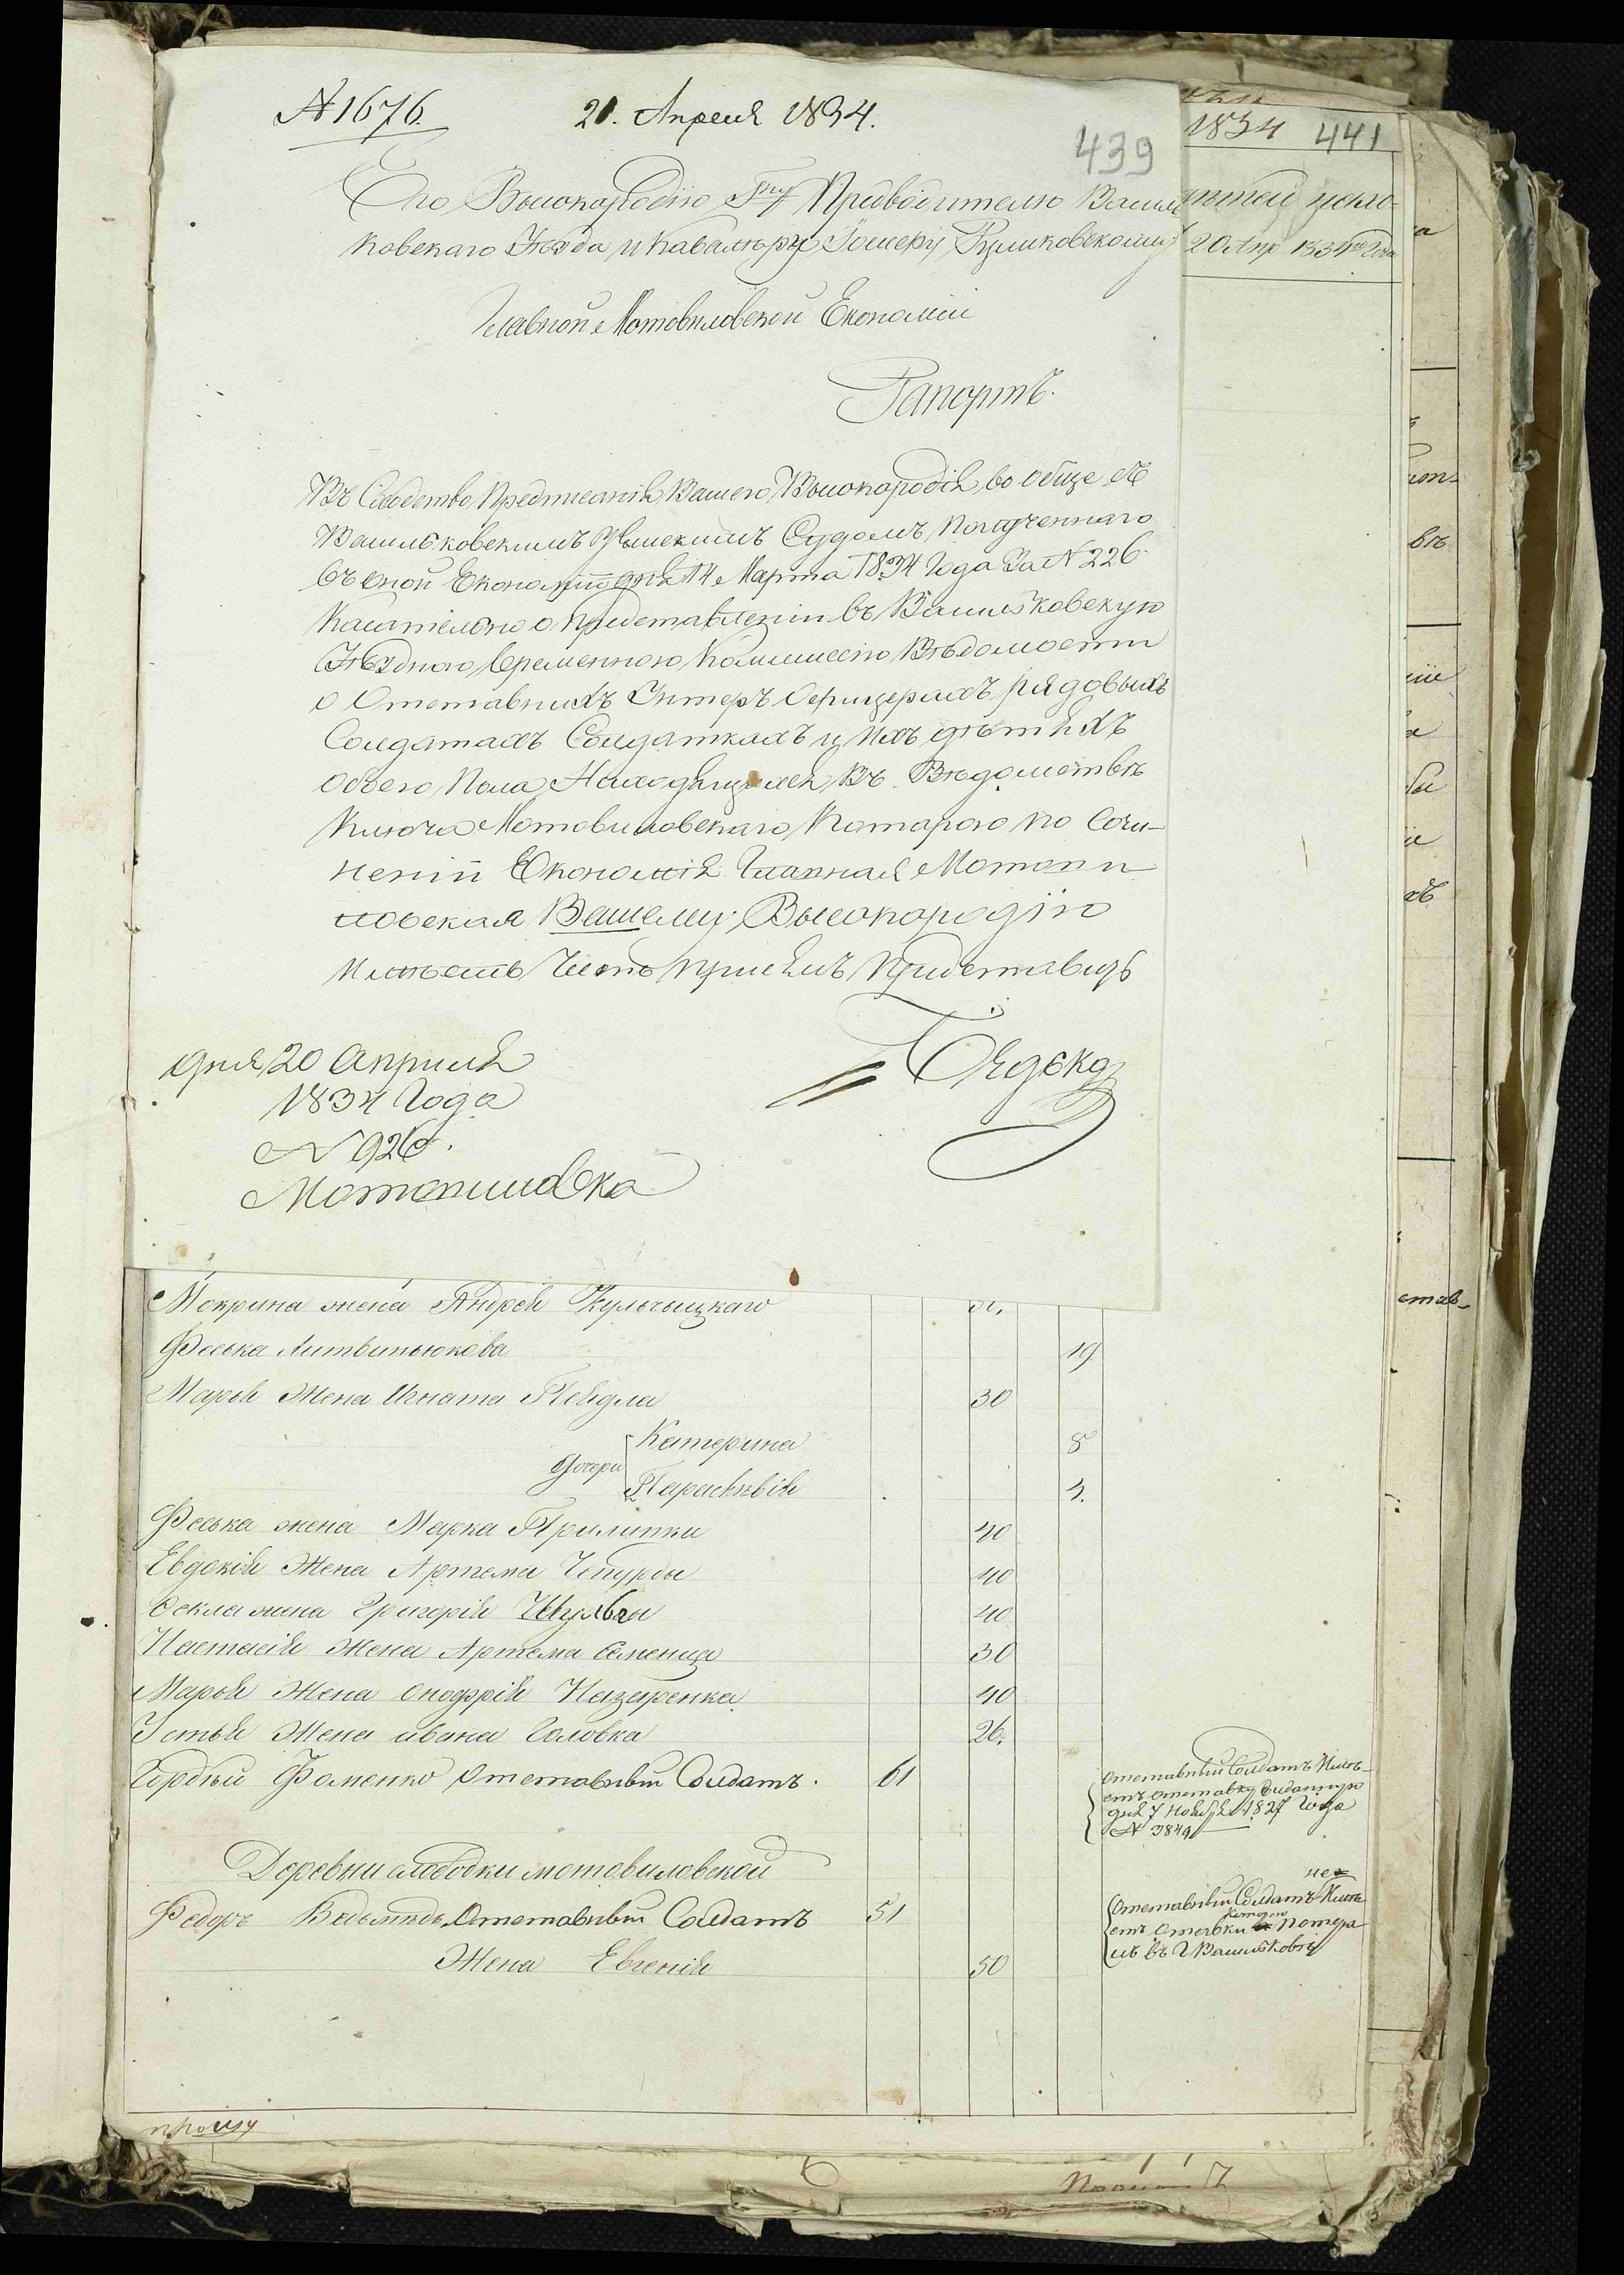 № 1676
21. Апреля 1834.
439
Его Высокородію Гну Предводителю Василь-
ковскаго Уѣзда и Кавалеру Іосифу Куликовскому
Главной Мотовиловской Економіи
Рапортъ.
Въ Следство Предписанія Вашего Высокородія во обще съ
Васильковскимъ Земскимъ Судомъ полученнаго
въ сной Економіи дня 14 Марта 1834 Года За № 226
Касательно о представленіи въ Васильковскую
Уѣздною Временною Коммиссію Вѣдомости
о Отставныхъ Унтеръ Офицерахъ рядовыхъ
Солдатахъ Солдаткахъ и ихъ дѣтяхъ
обоего Пола Находящихся Въ Вѣдомствѣ
Ключа Мотовиловскаго Которою по Сочи-
неніи Економія Главная Мотови
ловская Вашему Высокородію
имѣетъ Честь присемъ Представить
дня 20 Априля
1834 Года
№ 926.
Мотовиловка
1834 441
20 Апр 1834го Года
Мокрина жена Андрея Кульчыцкаго
Феська Литвинюкова 19
Марья Жена Игната 30
дочери Катерина 8
Парасковія 3.
Феська жена Марка Прилипки 40
Евдокія Жена Артема Чепурды 40
Фекла жена Григорія Шульги 40
Настасія Жена Артема Семенца 30
Марья Жена Онофрія Назаренка 40
Устья Жена ивана Головка 26.
Гордѣй Фоменко Отставный Солдатъ. 61
Отставный Солдатъ Имѣ-
етъ отставку виданную
дня 7 Ноября 1827 Года
№ 3849
Деревни слободки мотовиловской
Федоръ Ведьмѣдь Отставный Солдатъ 51
не
Отставный Солдатъ Имѣ
етъ отставки которою потера
лъ въ Г Васильковѣ
Жена Евгенія 50
прошу